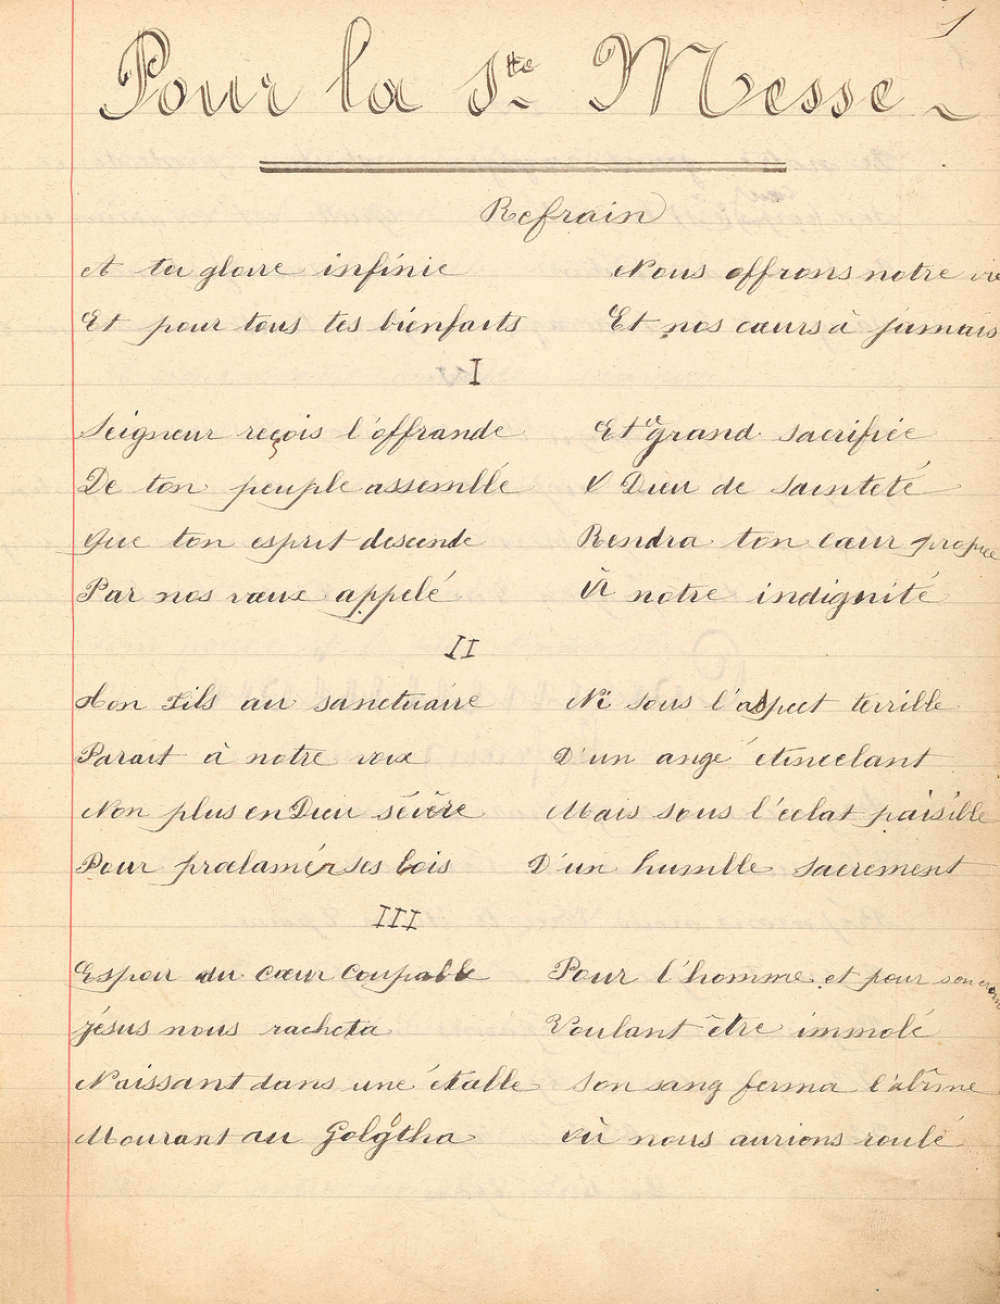 1
Pour la Ste Messe
Refrain
A ta gloire infinie
Et pour tous tes bienfaits
Nous offrons notre vie
Et nos cœurs à jamais
I
Seigneur reçois l'offrande
De ton peuple assemblé
Que ton esprit descende
Par nos vœux appelé
Et ce grand sacrifice
O Dieu de sainteté
Rendra ton cœur propice
À notre indignité
II
Ton Fils au sanctuaire
Parait à notre voix
Non plus en Dieu sévère
Pour proclamer ses lois
Ni sous l'aspect terrible
D'un ange étincelant
Mais sous l'éclat paisible
D'un humble sacrement
III
Espoir du cœur coupable
Jésus nous racheta
Naissant dans une étable
Mourant au Golgotha
Pour l'homme et pour son crime
Voulant être immolé
Son sang ferma l'abîme
où nous aurions roulé